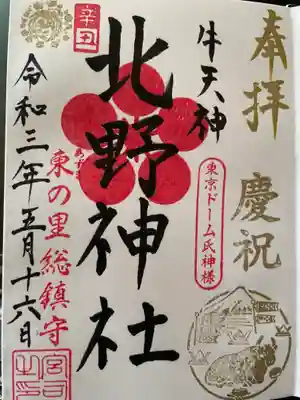 奉拝 慶祝
牛天神
東京ドーム氏神様
北野神社
辛丑
あづま
東の里総鎮守
令和三年五月十六日
宮司之印